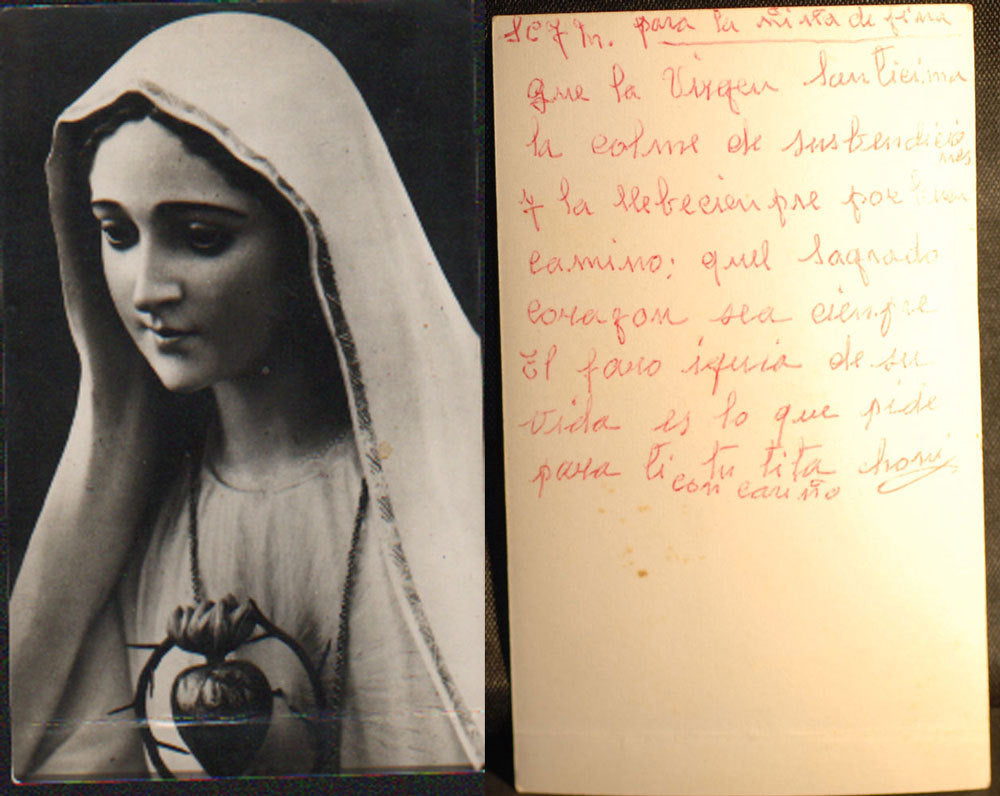 S C J M. para la niña de fina
que la Virgen Santicima
la colme de susbendiciones
y la llebeciempre por buen
camino; quel sagrado
corazon sea ciempre
El faro iguia de su
vida es lo que pide
para ti tu tita choni
con cariño